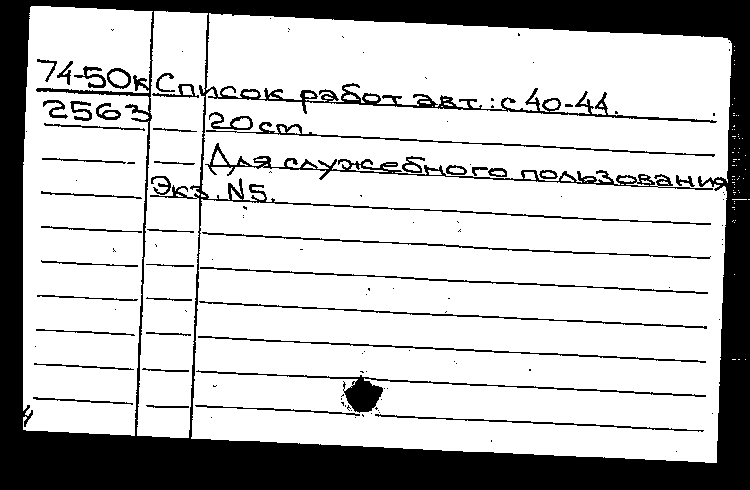 74-50к Список работ авт.: с 40-44.
2563 20 cm.
Для служебного пользования
Экз. N5.